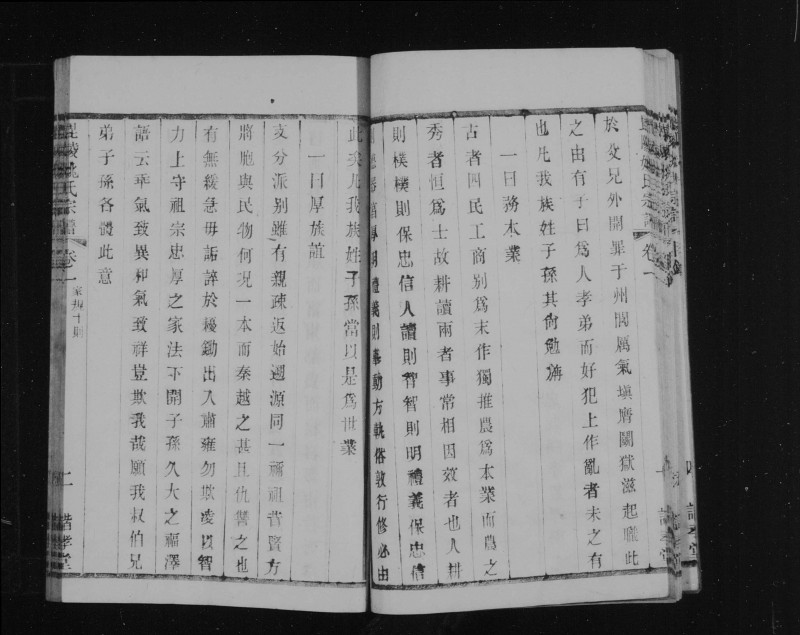 於父兄外開罪于州閭厲氣塡膺鬭獄滋起職此
之由有子曰爲人孝弟而好犯上作亂者未之有
也凡我族姓子孫其尙勉旃
一曰務本業
古者四民工商別爲末作獨推農爲本業而農之
秀者恒爲士故耕讀兩者事常相因效者也人耕
則樸樸則保忠信人讀則智智則明禮義保忠信
則明禮義則舉動方軌俗敦行修必由
此矣凡我族姓子孫當以是爲世業
一曰厚族誼
支分派別雖有親疎返始遡源同一禰祖昔賢方
將胞與民物何況一本而秦越之甚且仇讐之也
有無緩急毋詬誶於耰鋤出入肅雍勿欺凌以智
力上守祖宗忠厚之家法下開子孫久大之福澤
語云乖氣致異和氣致祥豈欺我哉願我叔伯兄
弟子孫各體此意
毘陵姚氏宗譜 卷一 家規十則 二 諧孝堂